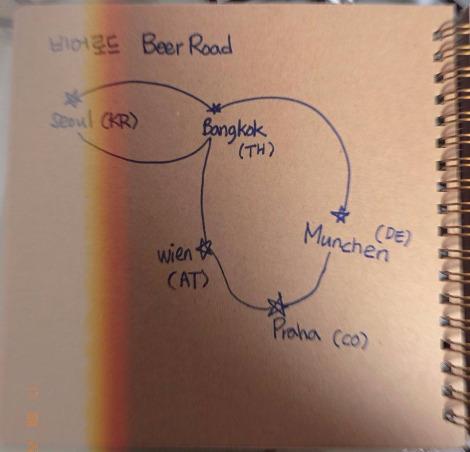 비어로드 Beer Road
Seoul (KR)
Bangkok
(TH)
Munchen (DE)
wien
(AT)
Praha (CO)